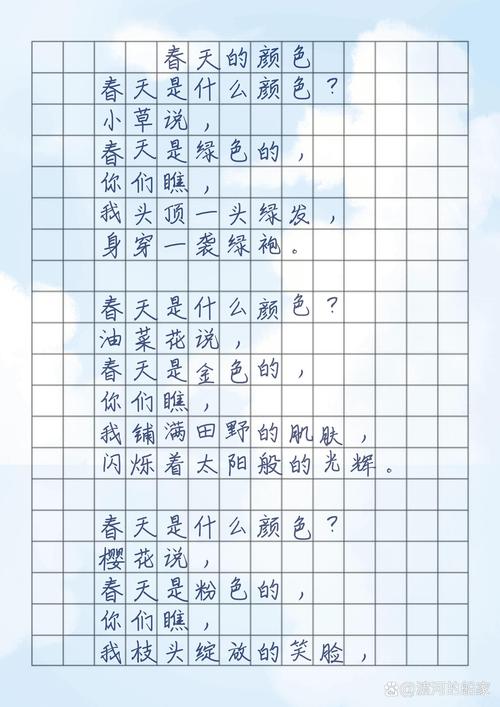 春天的颜色
春天是什么颜色？
小草说，
春天是绿色的，
你们瞧，
我头顶一头绿发，
身穿一袭绿袍。
春天是什么颜色？
油菜花说，
春天是金色的，
你们瞧，
我铺满田野的肌肤，
闪烁着太阳般的光辉。
春天是什么颜色？
樱花说，
春天是粉色的，
你们瞧，
我枝头绽放的笑脸，
@渡河的船家